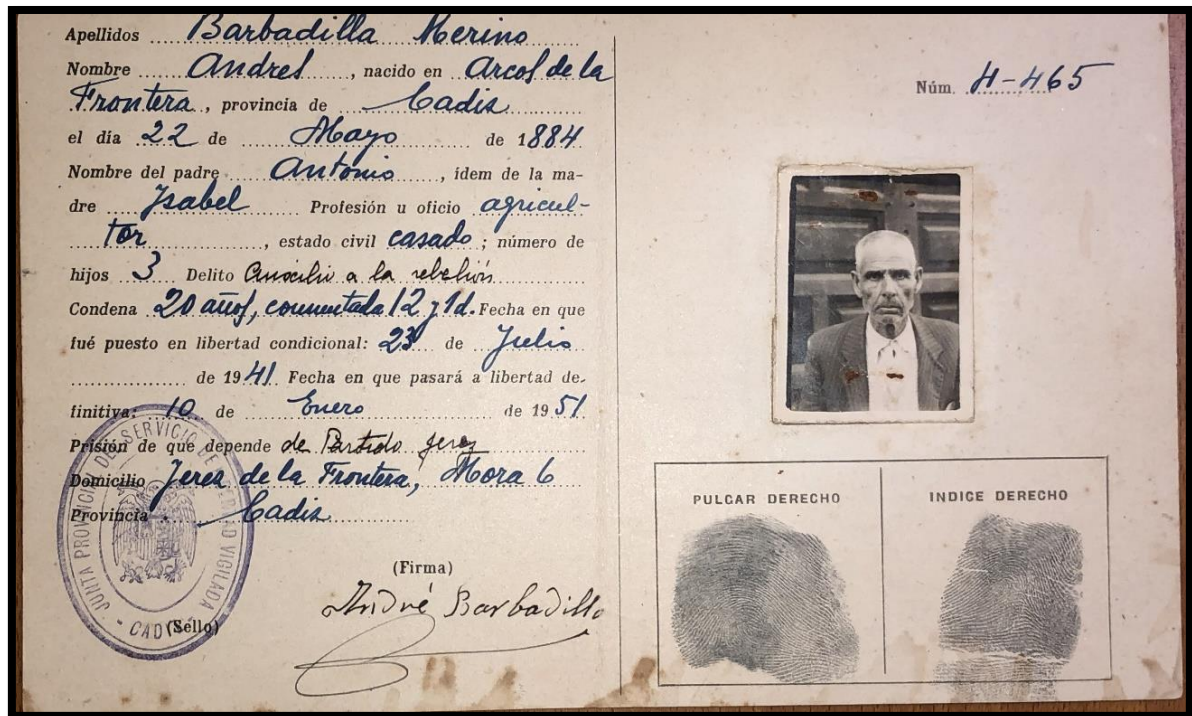 Apellidos Barbadilla Merino
Nombre Andres, nacido en Arcos de la
Frontera, provincia de Cadiz
el día 22 de Mayo de 1884
Nombre del padre Antonio, ídem de la ma-
dre Ysabel Profesión u oficio agricul-
tor, estado civil casado; número de
hijos 3 Delito Auxilio a la rebelión
Condena 20 años, conmutada 12 y 1d. Fecha en que
fué puesto en libertad condicional: 23 de Julio
de 1941 Fecha en que pasará a libertad de-
finitiva: 10 de Enero de 1951
Prisión de que depende de Partido Jerez
Domicilio Jerez de la Frontera, Mora 6
Provincia Cadiz
(Firma)
André Barbadillo
(Sello)
JUNTA PROVINCIAL DEL SERVICIO DE LIBERTAD VIGILADA - CADIZ
Núm. H-465
PULGAR DERECHO
INDICE DERECHO